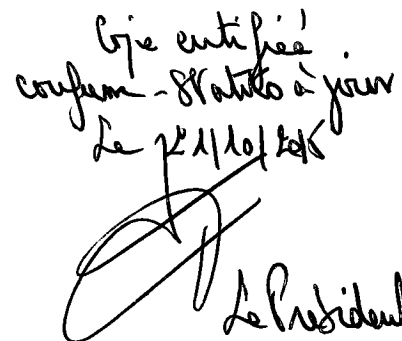 Copie certifiée
conforme - Statuts à jour
Le 21/10/2015
Le Président